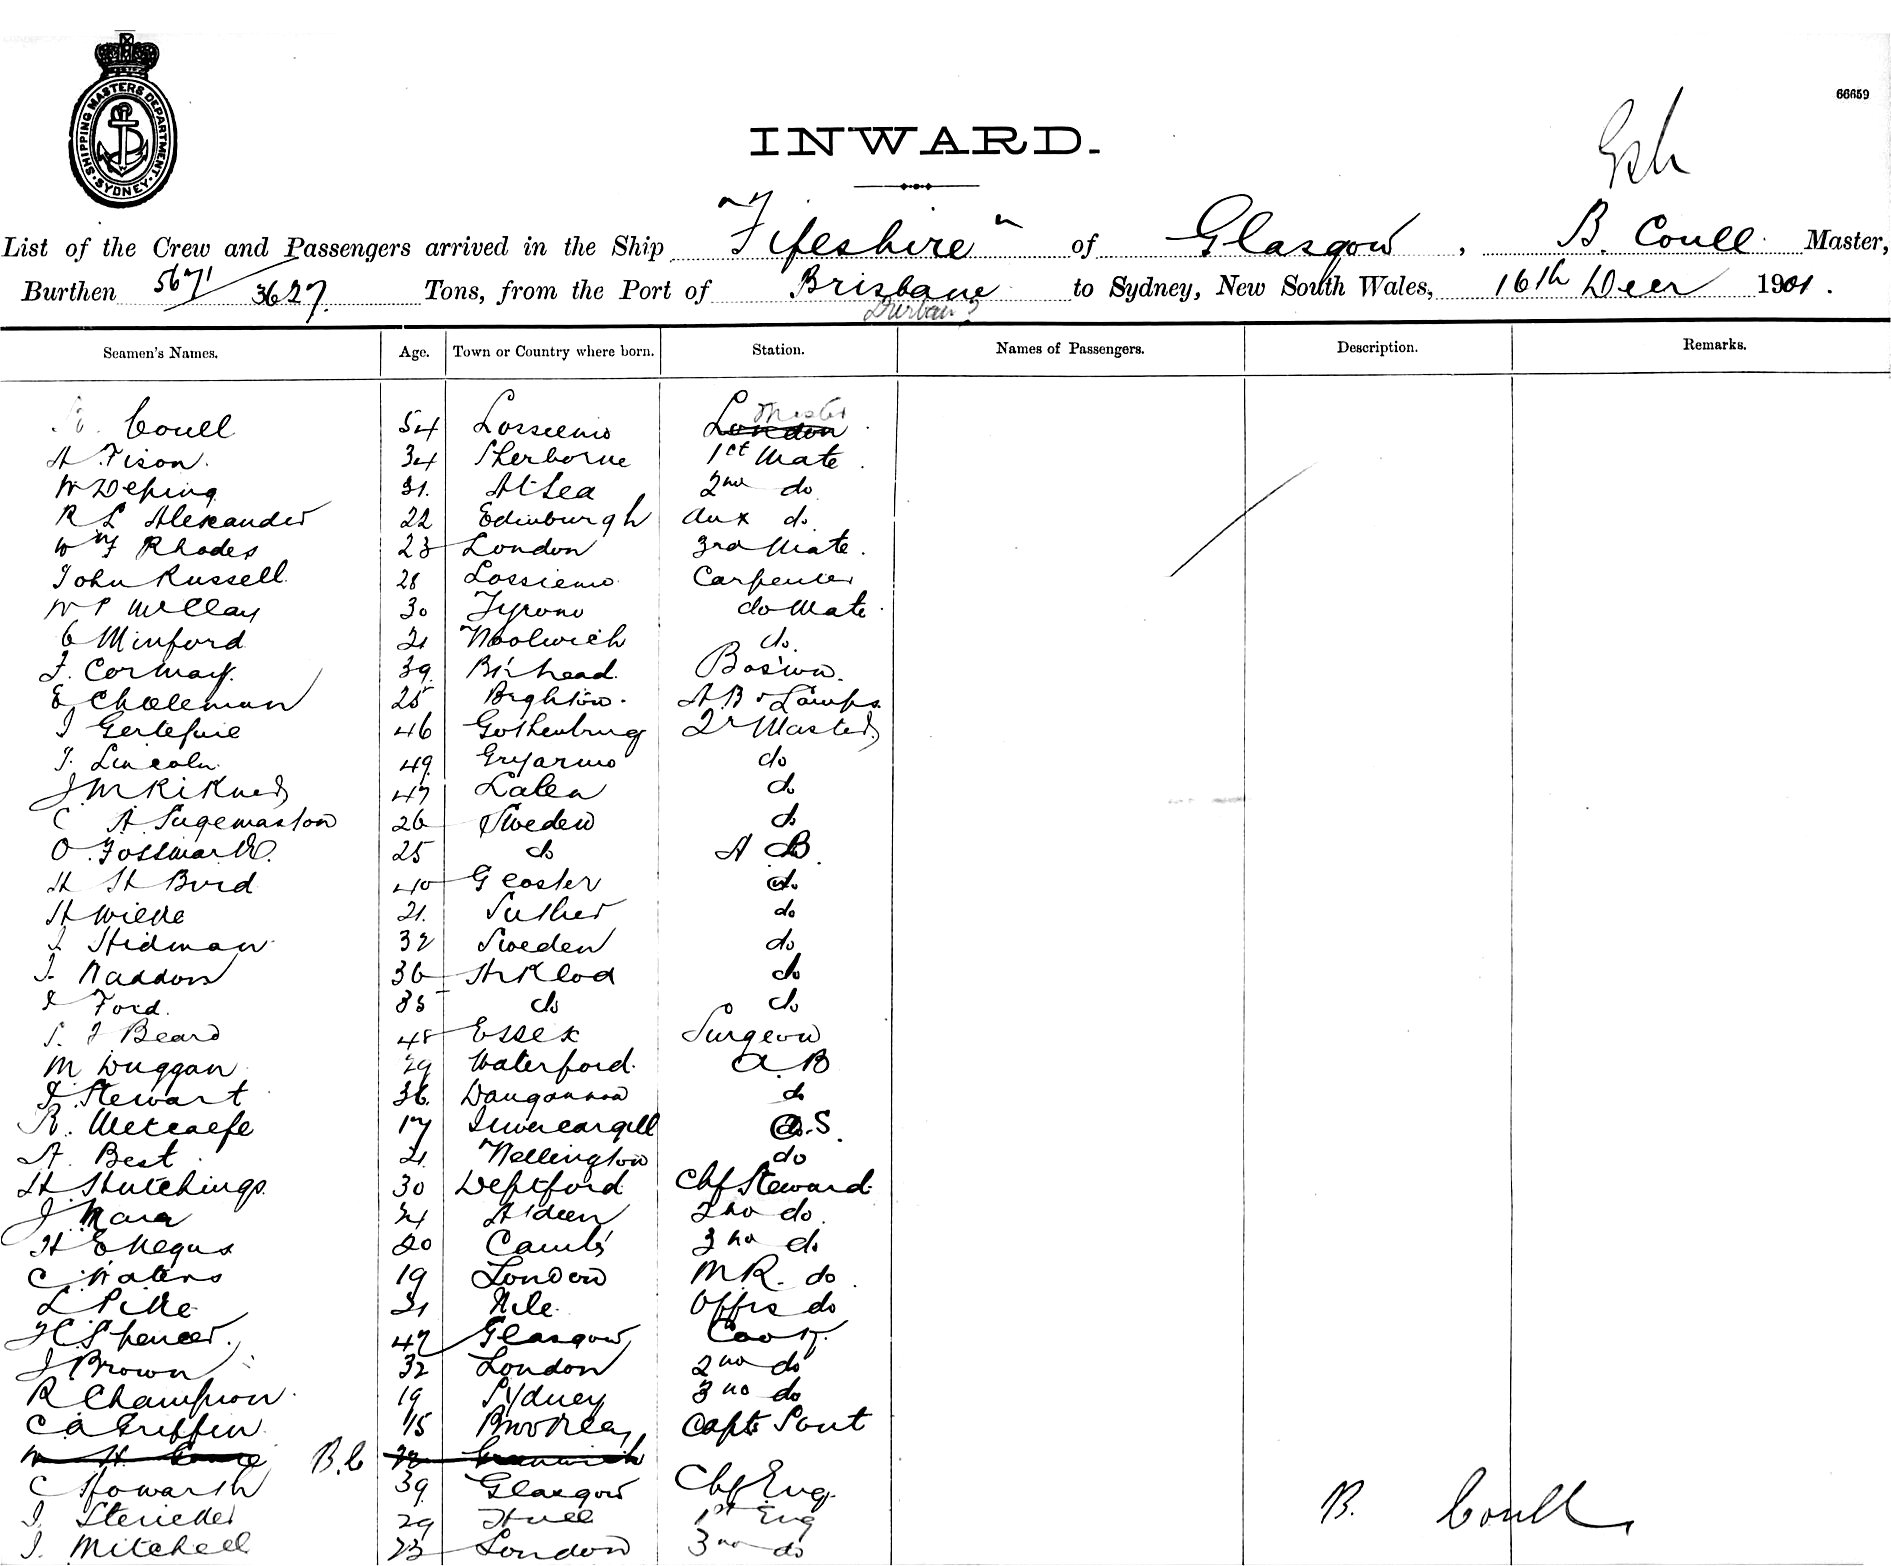 SHIPPING MASTERS DEPARTMENT. SYDNEY
66659
INWARD.
List of the Crew and Passengers arrived in the Ship "Fifeshire" of Glasgow, B. Coull Master,
Burthen 5671/3627 Tons, from the Port of Brisbane to Sydney, New South Wales, 16th Decr 1901.
Durban?
Seamen's Names. Age. Town or Country where born. Station. Names of Passengers. Description. Remarks.
Master
Coull 54 Lossiemo London
A Fison. 34 Sherborne 1st Mate
W Deping 31. At Sea 2nd do
R L Alexander 22 Edinburgh Aux do.
Rhodes 23 London 3rd Mate.
John Russell 28 Lossiemo Carpenter
W P McClay 30 Tyrone do Mate
C Minford 21 Woolwich do.
J. Cormack. 39. B'khead. Bos'wn.
E 25 Brighton. A B & Lamps
46 Gothenburg Qr Master
J. Lincoln. 49. do
47 do
C A 26 Sweden do
O. 25 do A B.
H H Bird 40 Gloster do.
H Wilde 21. do
J. Hidman 32 Sweden do
J. Haddon 36 do
J Ford. 35 do do
S. J Beard 48 Essex Surgeon
M Duggan 29 Waterford. A. B
J. Stewart 36. Dungannon do
R. Metcalfe 17 Invercargill O.S.
A. Best 21. Wellington do
H Hutchings 30 Deptford Chf Steward
J Mara 24 A'deen 2nd do.
H E Negus 20 Cambs 3rd do
C. Waters 19 London M.R. do.
L Pike 21 Offrs do
H C Spencer. 47 Glasgow Cook.
J Brown 32 London 2nd do
R Champion. 19 Sydney 3rd do
C A Griffin 15 Capts Sevt
W H B.C Greenwich
C Howarth 39. Glasgow Chf Eng.
J. 29 Hull 1st Eng
J. Mitchell 23 London 3rd do
B. Coull